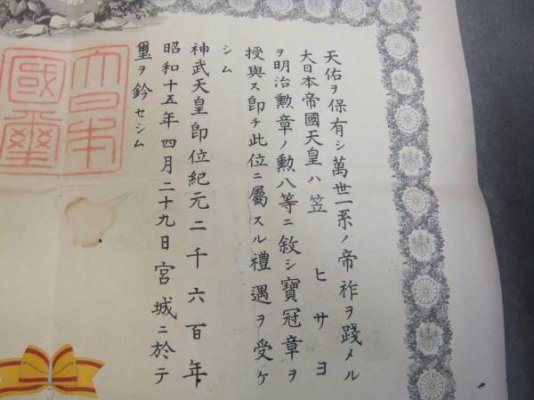 天佑ヲ保有シ萬世一系ノ帝祚ヲ踐メル
大日本帝國天皇ハ笠 ヒサヨ
ヲ明治勲章ノ勲八等ニ敘シ寶冠章ヲ
授與ス即チ此位ニ屬スル禮遇ヲ受ケ
シム
神武天皇即位紀元二千六百年
昭和十五年四月二十九日宮城ニ於テ
璽ヲ鈐セシム
大日本
國璽